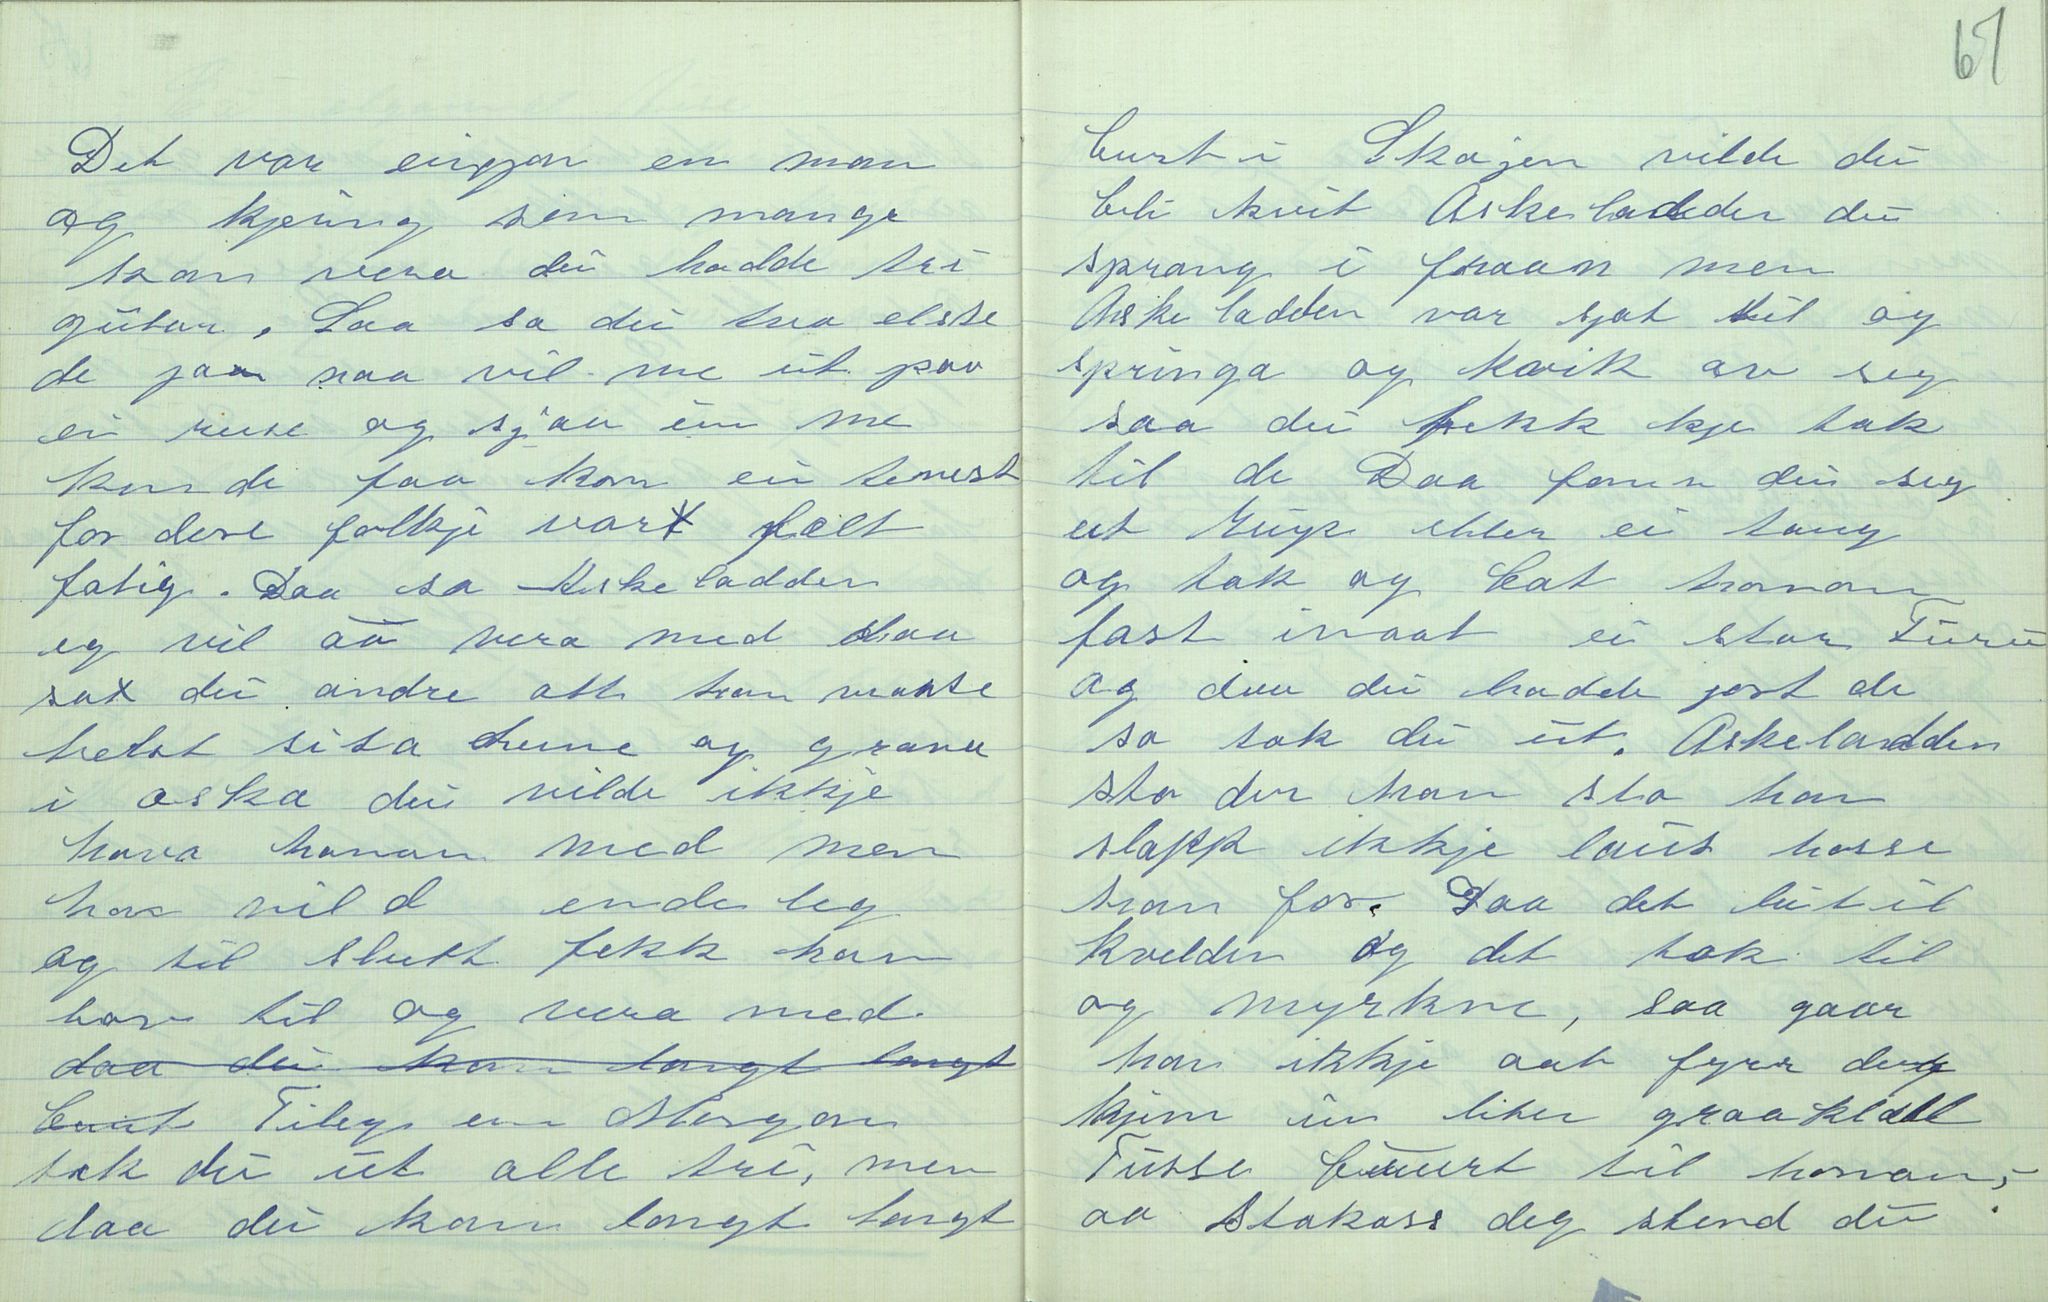 Det var eingon en man
og kjering som mange
kan vera dei hadde tri
gutar. Saa sa dei tvo elste
de jaa naa vil me ut paa
ei reise og sjaa um me
kunde faa kom ei tenest
for dese folkje var fælt
fatig. Daa sa Askeladden
eg vil åå vera med daa
sa dei andre att han maate
helst sita heime og grava
i oska dei vilde ikkje
hava honom med men
han vild endeleg
og til slutt fekk han
lov til og vera med.
daa dei kom langt langt
burt Tileg en Morgon
tok dei ut alle tri, men
daa dei kom langt langt
67
burt i Skogen vilde dei
bli kvit Askeladden dei
sprang i fraan men
Askeladden var gjot til og
springa og kvik av seg
saa dei fekk kje tak
til de Daa fann dei seg
ut Reip eller ei taug
og tok og bat honom
fast inaat ei stor Furu
og daa dei hadde jort de
so tok dei ut. Askeladden
sto der han sto han
slapp ikkje laus hosse
han for. Daa det leit til
kvelden og det tok til
og myrkne, saa gaar
han ikkje aat fyrr deg
kjem ein liten graakledd
Tusse burt til honom,
aa Stakars deg stend du